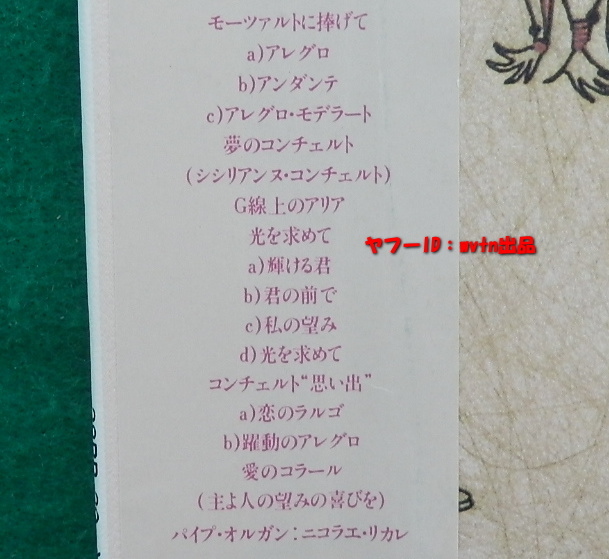 モーツァルトに捧げて
a)アレグロ
b)アンダンテ
c)アレグロ・モデラート
夢のコンチェルト
(シシリアンヌ・コンチェルト)
G線上のアリア
光を求めて
ヤフーID：mvtn出品
a)輝ける君
b)君の前で
c)私の望み
d)光を求めて
コンチェルト“思い出”
a)恋のラルゴ
b)躍動のアレグロ
愛のコラール
(主よ人の望みの喜びを)
パイプ・オルガン：ニコラエ・リカレ